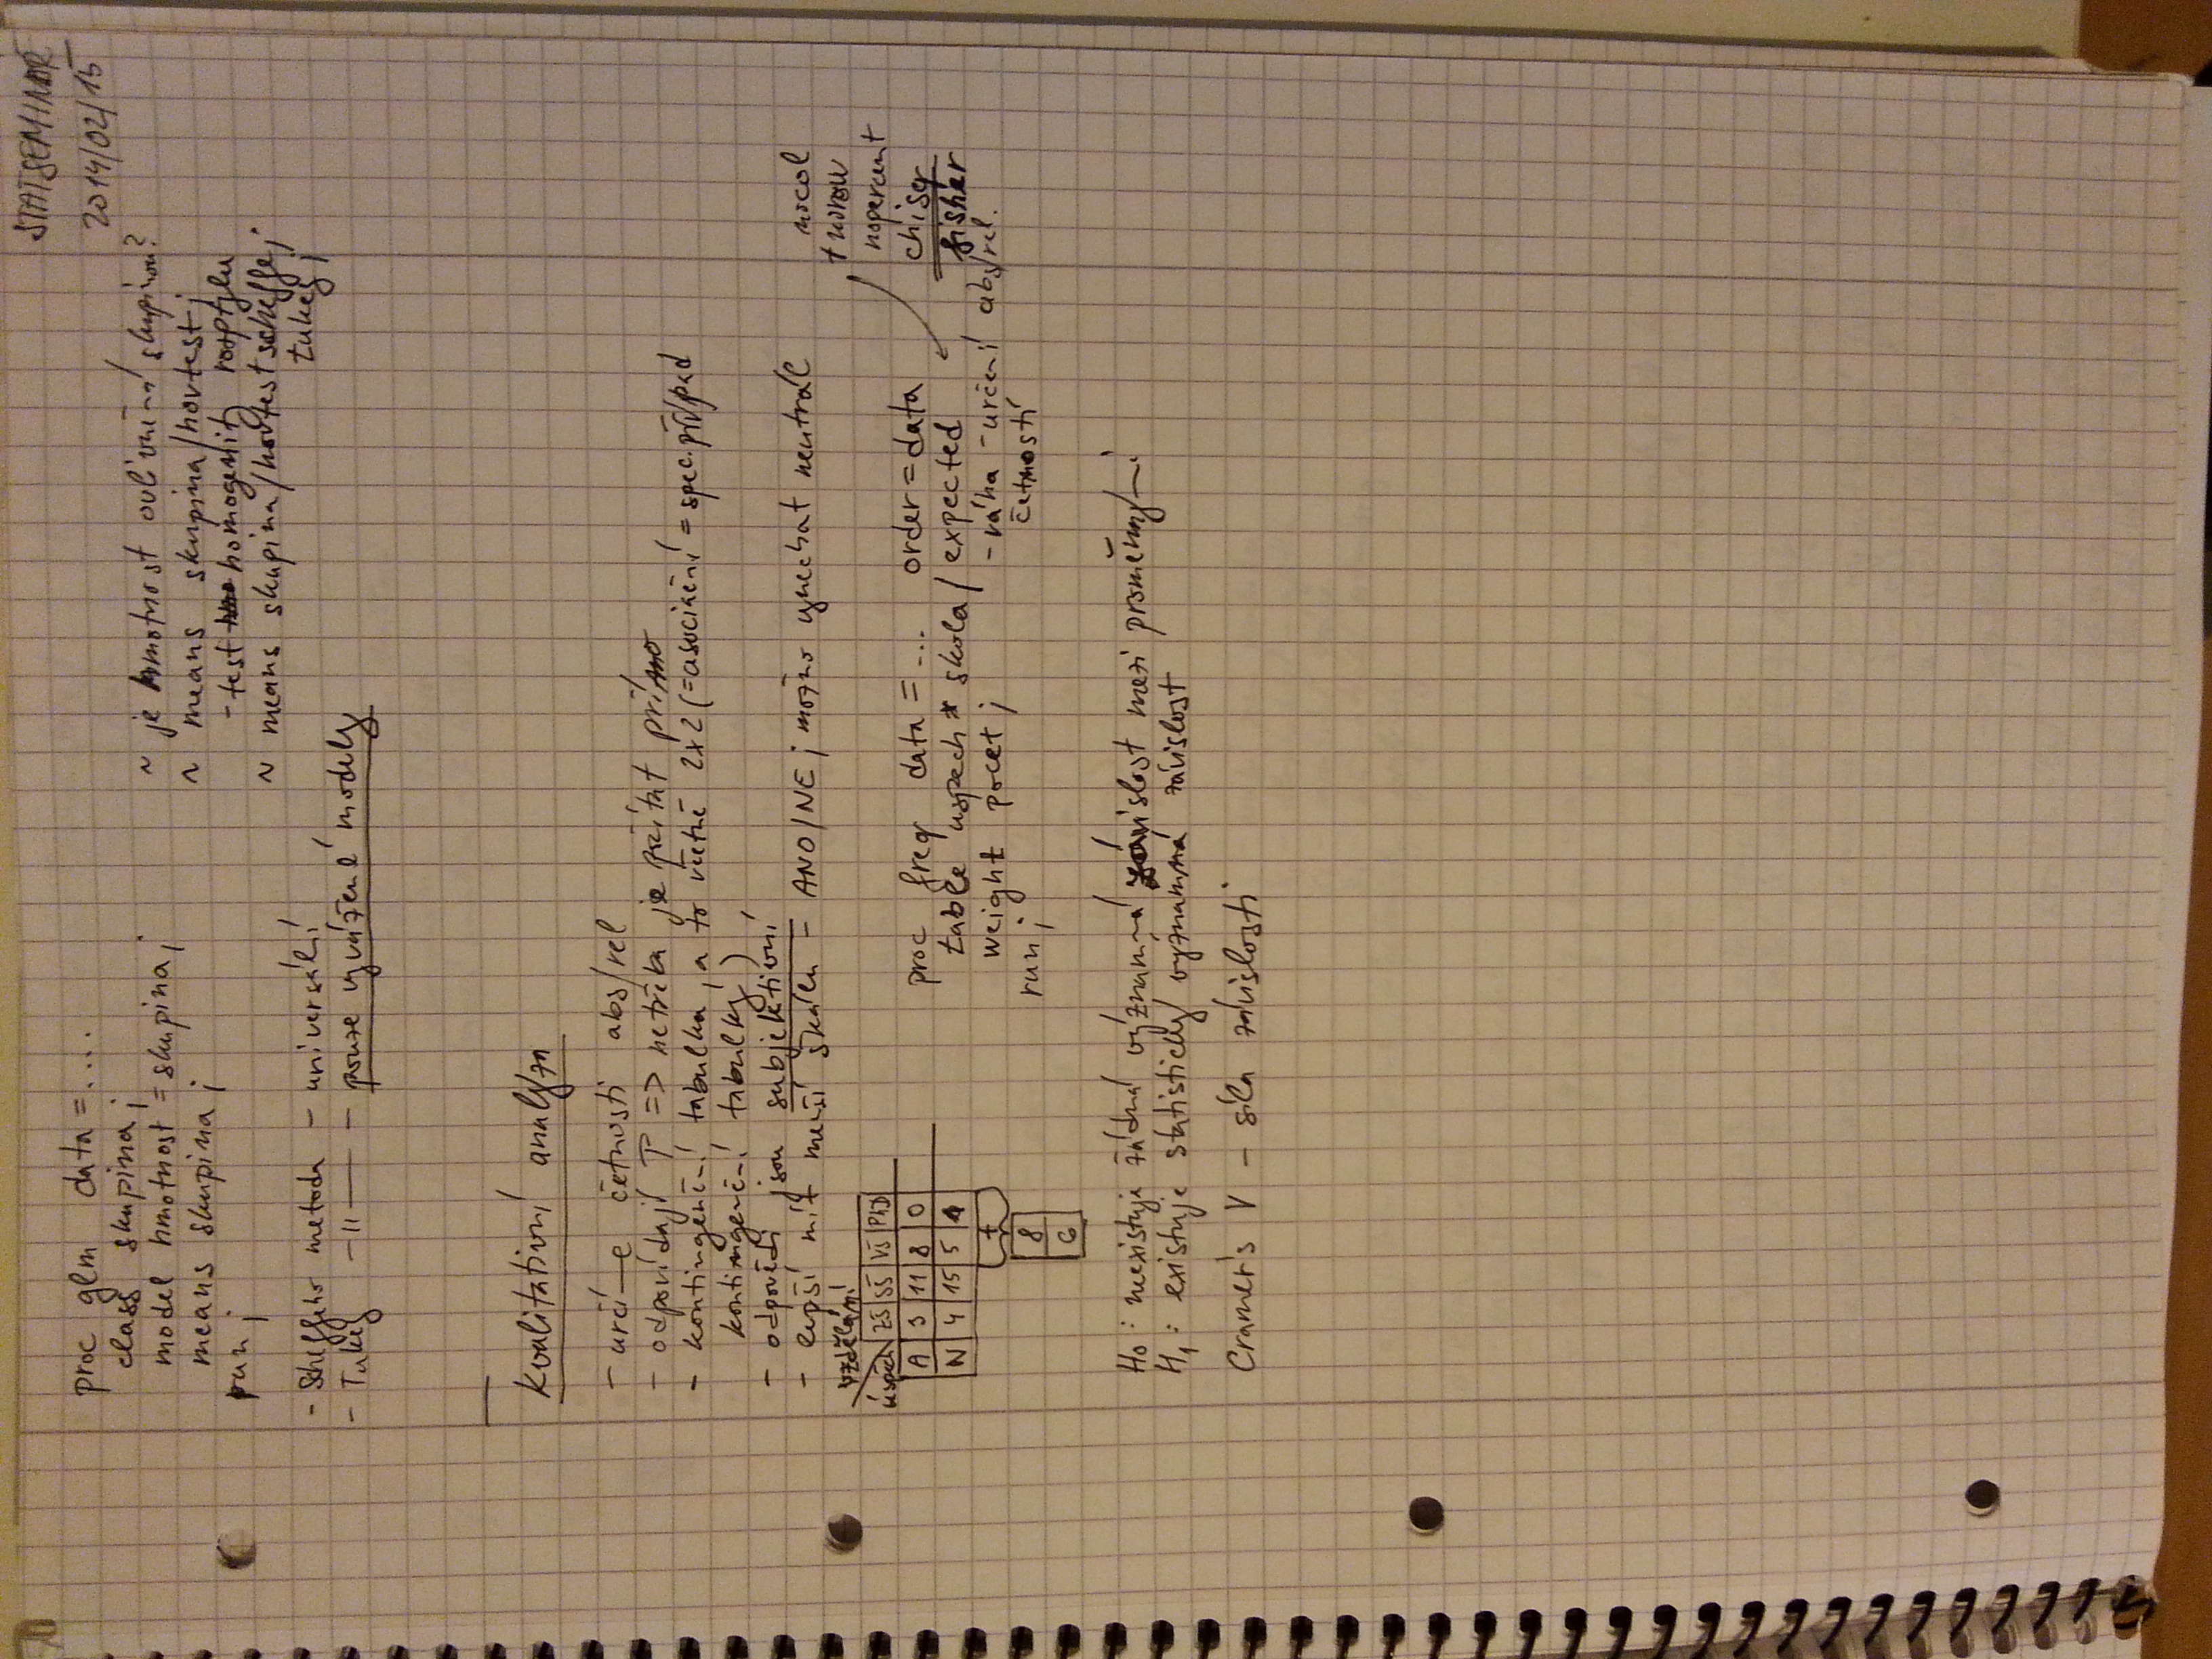 STATSEMINÁŘ
2014/02/15
proc glm data=....
class skupina;
model hmotnost = skupina;
means skupina;
run;
~ je hmotnost ovlivnění skupinou?
~ means skupina/hovtest;
- test homogenity rozptylu
~ means skupina/hovtest scheffe;
tukey;
- Sheffeho metoda - universální
- Tukey -||- - pouze vyvážené modely
Kvalitativní analýza
- určí-e četnosti abs/rel
- odpovídají P => netřeba je počítat přímo
- kontingenční tabulka, a to včetně 2x2 (=asociační = spec. případ
kontingenční tabulky)
- odpovědi jsou subjektivní
- lepší mít menší škálu = ANO/NE; možno vynechat neutrál
vzdělání
úspěch ZŠ SŠ VŠ PhD
A 3 11 8 0
N 4 15 5 4
+
8
6
proc freq data = ... order=data
table uspech * skola / expected
weight pocet;
run;
nocol
+ norow
nopercent
chisq
fisher
- váha - určení abs/rel.
četností
H0: neexistuje žádná významná závislost mezi proměnný-i
H1: existuje statisticky významná závislost
Cramerís V - síla závislosti